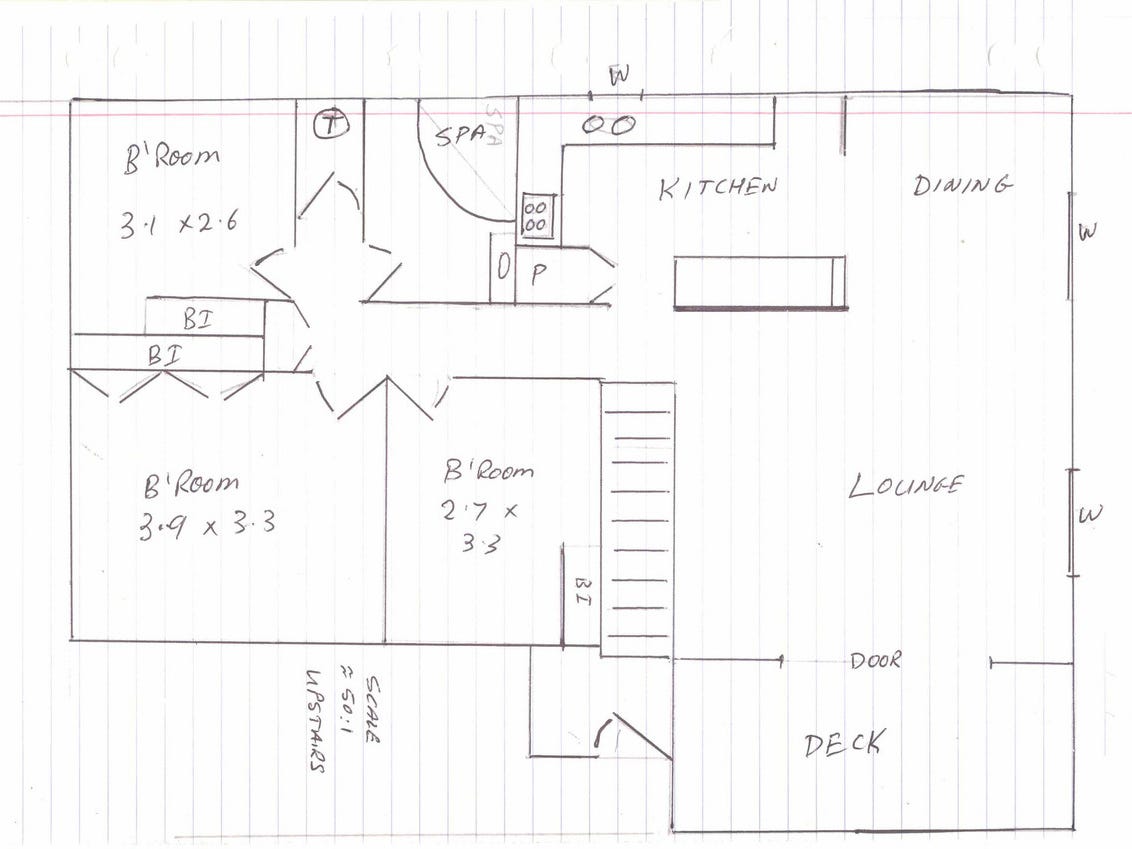 W
B'Room
3.1 x2.6
T
SPA
SPA
KITCHEN
DINING
W
P
BI
BI
B'Room
3.9 x 3.3
B'Room
2.7 x
3.3
BI
LOUNGE
W
DOOR
DECK
SCALE
≈ 50:1
UPSTAIRS